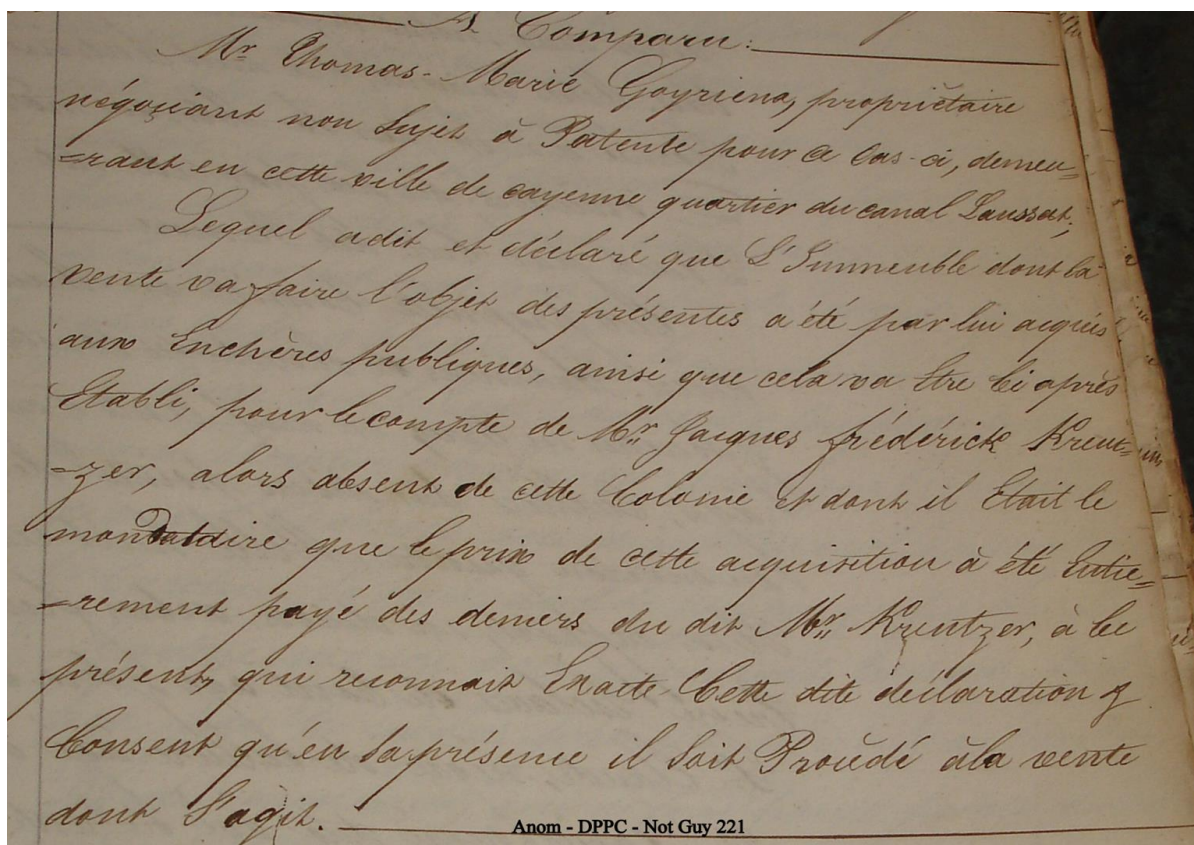 A Comparu:
Mr Thomas-Marie Goyriena, propriétaire
négociant non Sujet à Patente pour ce Cas-ci, demeu=
=rant en cette ville de cayenne quartier du canal Laussat;
Lequel a dit et déclaré que L'Immeuble dont la
vente va faire l'objet des présentes a été par lui acquis
aux Enchères publiques, ainsi que cela va Etre Ci après
Etabli, pour le compte de Mr Jacques frédérick Kreut=
=zer, alors absent de cette Colonie et dont il Etait le
mandataire que le prix de cette acquisition à été Entiè=
=rement payé des deniers du dit Mr Kreutzer, à ce
présent, qui reconnait Exacte Cette dite déclaration &
Consent qu'en sa présence il Soit Procédé à la vente
dont S'agit.
Anom - DPPC - Not Guy 221